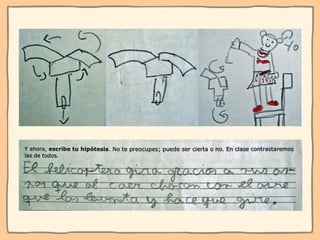 Yo
Y ahora, escribe tu hipótesis. No te preocupes; puede ser cierta o no. En clase contrastaremos
las de todos.
El helicoptero gira gracias a sus as-
pas que al caer chocan con el aire
que las levanta y hace que gire.